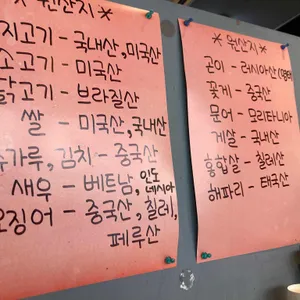 * 원산지 *
지고기 - 국내산, 미국산
소고기 - 미국산
닭고기 - 브라질산
쌀 - 미국산, 국내산
김치 - 중국산
새우 - 베트남, 인도네시아
오징어 - 중국산, 칠레,
페루산
* 원산지 *
곤이 - 러시아산
꽃게 - 중국산
문어 - 모리타니아
게살 - 국내산
홍합살 - 칠레산
해파리 - 태국산